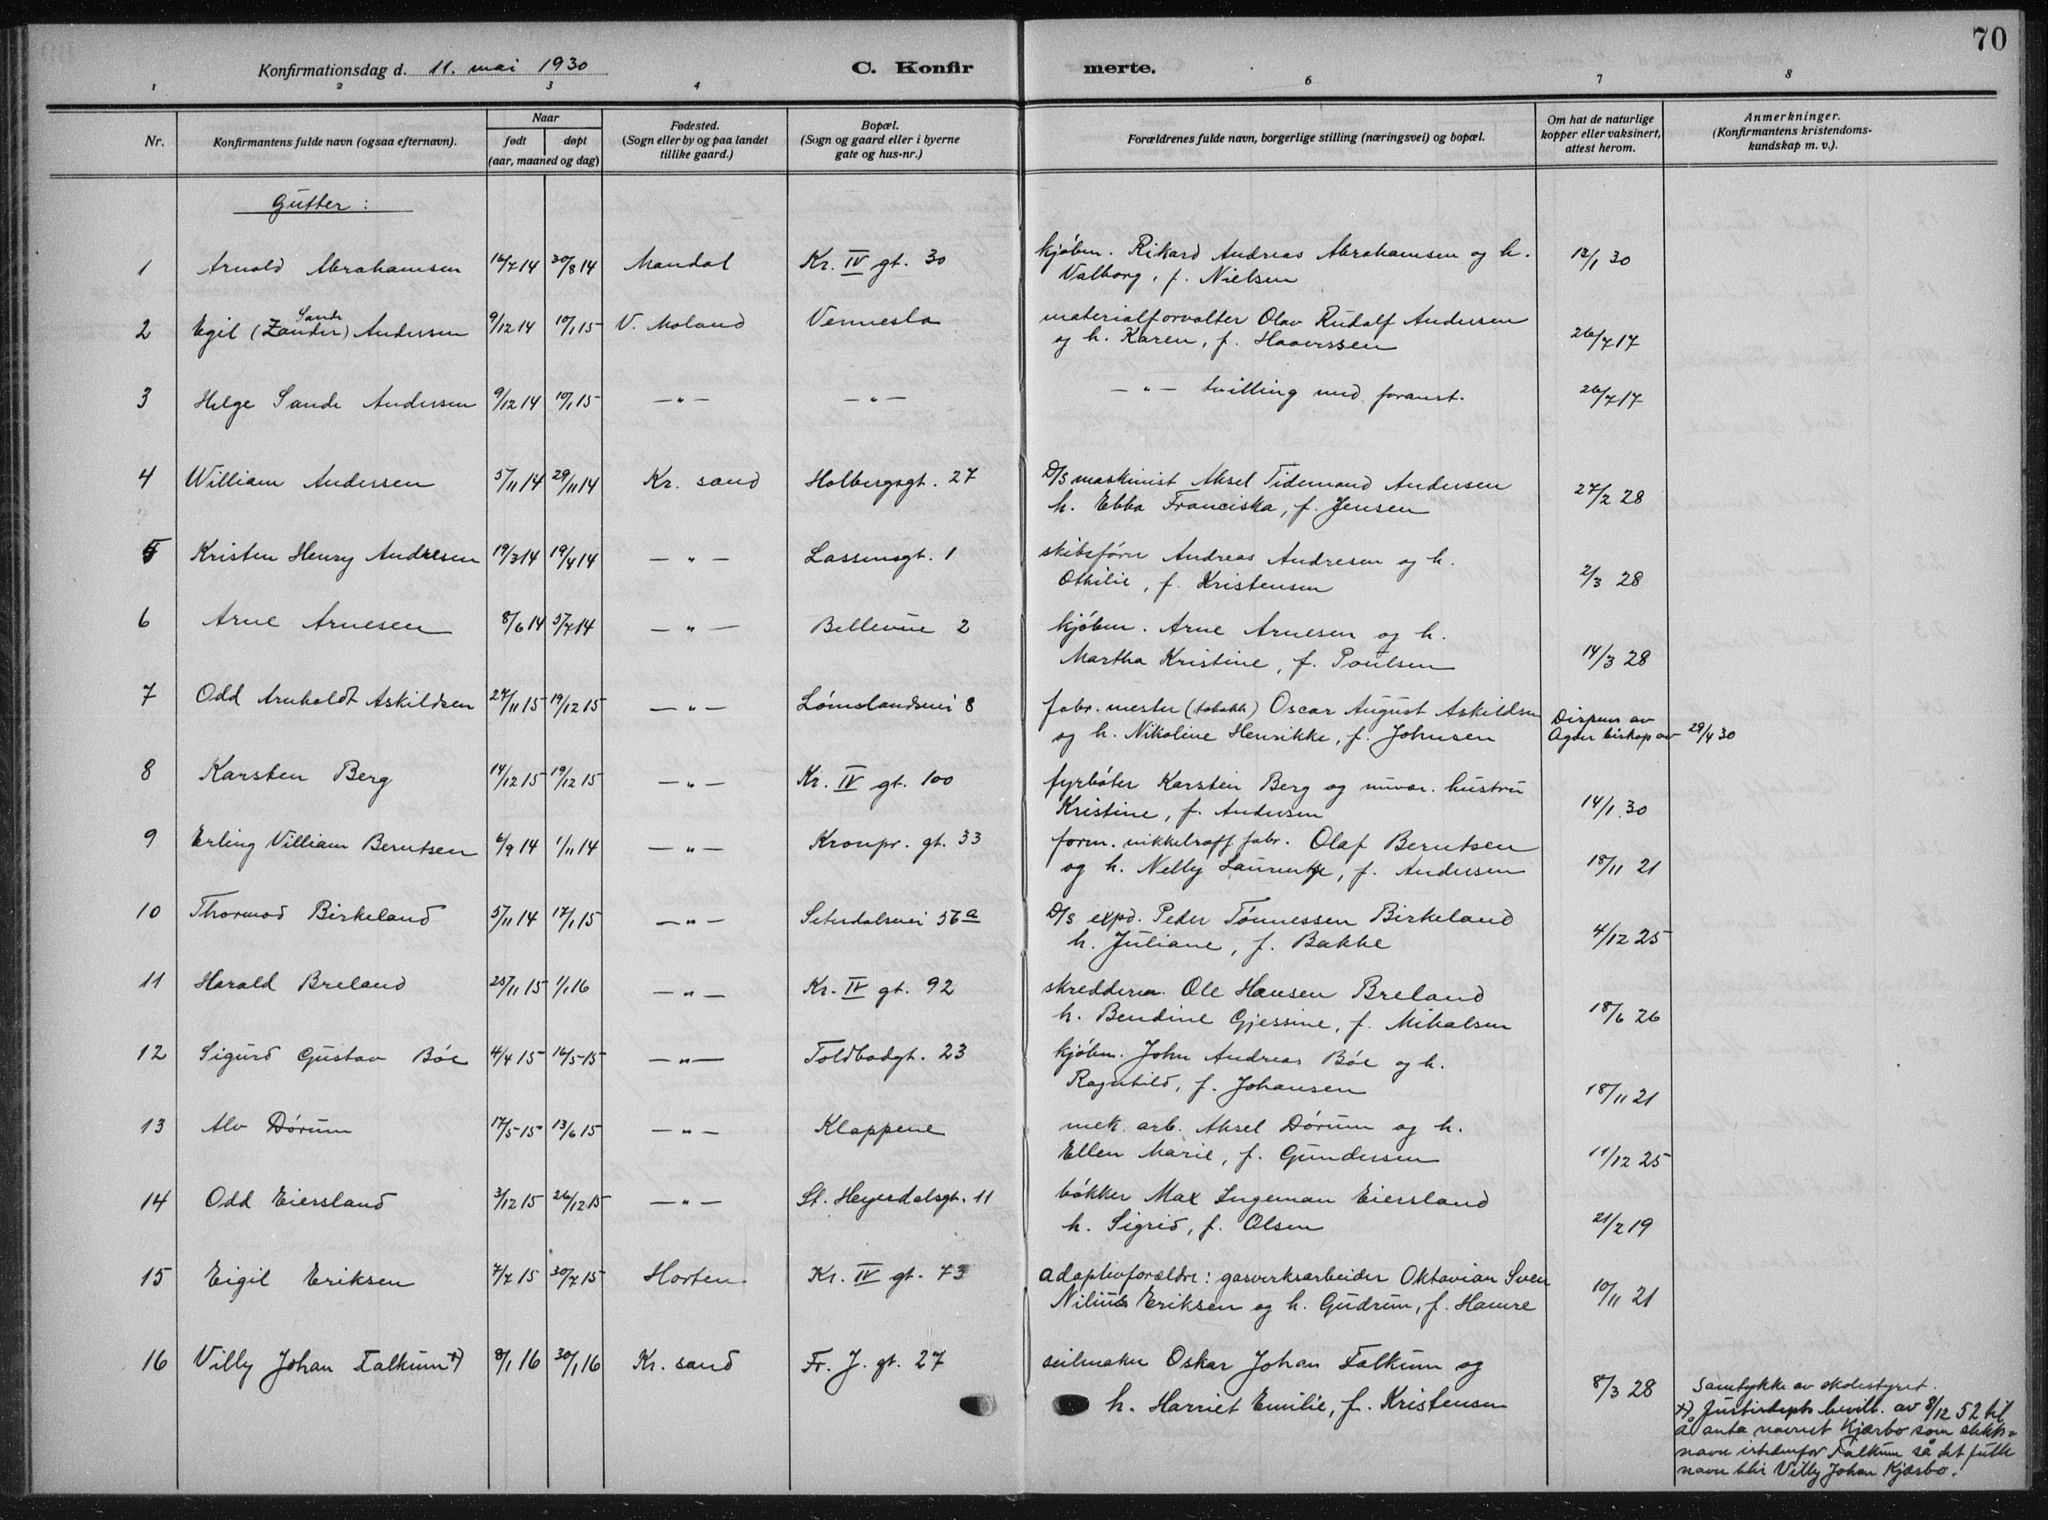 70
Konfirmationsdag d. 11. mai 1930 C. Konfirmerte.
1 2 3 4 5 6 7 8
Nr. Konfirmantens fulde navn (ogsaa efternavn). Naar født døpt (aar, maaned og dag) Fødested. (Sogn eller by og paa landet tillike gaard.) Bopæl. (Sogn og gaard eller i byerne gate og hus-nr.) Forældrenes fulde navn, borgerlige stilling (næringsvei) og bopæl. Om hat de naturlige kopper eller vaksinert, attest herom. Anmerkninger. (Konfirmantens kristendomskundskap m. v.).
Gutter:
1 Arnold Abrahamsen 16/7 14 30/8 14 Mandal Kr. IV gt. 30 kjøbm. Rikard Andreas Abrahamsen og h. 13/1 30
Valborg, f. Nielsen
2 Egil (Zander) Sande Andersen 9/12 14 10/1 15 V. Moland Vennesla materialforvalter Olav Rudolf Andersen
og h. Karen, f. Haaverssen 26/7 17
3 Helge Sande Andersen 9/12 14 10/1 15 —"— —"— —"— tvilling med foranst. 26/7 17
4 William Andersen 5/11 14 29/11 14 Kr. sand Holbergsgt. 27 D/S maskinist Aksel Tidemand Andersen
h. Ebba Franciska, f. Jensen 27/2 28
5 Kristen Henry Andresen 19/3 14 19/4 14 —"— Lassensgt. 1 skibsfører Andreas Andresen og h.
Othilie, f. Kristensen 2/3 28
6 Arne Arnesen 8/6 14 5/7 14 —"— Bellevue 2 kjøbm. Arne Arnesen og h.
Martha Kristine, f. Poulsen 14/3 28
7 Odd Arnholdt Askildsen 27/11 15 19/12 15 —"— Lømslandsvei 8 fabr. mester (tobakk) Oscar August Askildsen
og h. Nikoline Henrikke, f. Johnsen Dispens av Agder biskop av 29/4 30
8 Karsten Berg 14/12 15 19/12 15 —"— Kr. IV gt. 100 fyrbøter Karsten Berg og nuvær. hustru
Kristine, f. Andersen 14/1 30
9 Erling Villiam Berntsen 6/9 14 1/11 14 —"— Kronpr. gt. 33 form. nikkelraff. fabr. Olaf Berntsen
og h. Nelly Laurentze, f. Andersen 18/11 21
10 Thormod Birkeland 5/11 14 17/1 15 —"— Setesdalsvei 56a D/S exp. Peder Tønnessen Birkeland
h. Juliane, f. Bakke 4/12 25
11 Harald Breland 25/11 15 1/1 16 —"— Kr. IV gt. 92 skredderm. Ole Hansen Breland
h. Bendine Gjessine, f. Mikalsen 18/6 26
12 Sigurd Gustav Bøe 4/4 15 16/5 15 —"— Toldbodgt. 23 kjøbm. John Andreas Bøe og h.
Ragnhild, f. Johansen 18/11 21
13 Alv Dørum 17/5 15 13/6 15 —"— Klappene mek. arb. Aksel Dørum og h.
Ellen Marie, f. Gundersen 11/12 25
14 Odd Eiersland 3/12 15 26/12 15 —"— St. Heyerdalsgt. 11 bøkker Max Ingeman Eiersland
h. Sigrid, f. Olsen 21/2 19
15 Eigil Eriksen 7/7 15 30/7 15 Horten Kr. IV gt. 73 adoptivforældre: gasverksarbeider Oktavian Sven
Nilius Eriksen og h. Gudrum, f. Hamre 10/11 21
16 Villy Johan Falkum +) 8/1 16 30/1 16 Kr. sand Fr. J. gt. 27 seilmaker Oskar Johan Falkum og
h. Harriet Emilie, f. Kristensen 8/3 28 Samtykke av skolestyret.
+) Justisdepts bevill. av 8/12 52 til
å anta navnet Kjærbo som slekts-
navn istedenfor Falkum så det fulle
navn blir Villy Johan Kjærbo.